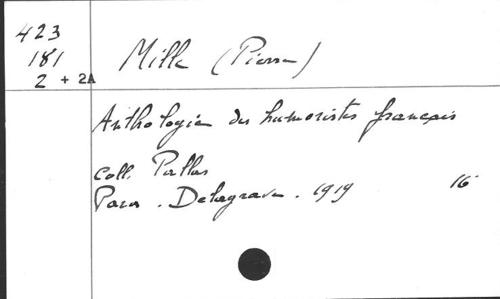 423
181
2 + 2A
Mille (Pierre)
Anthologie des humoristes français
Coll. Pallas
Paris. Delagrave. 1919 16